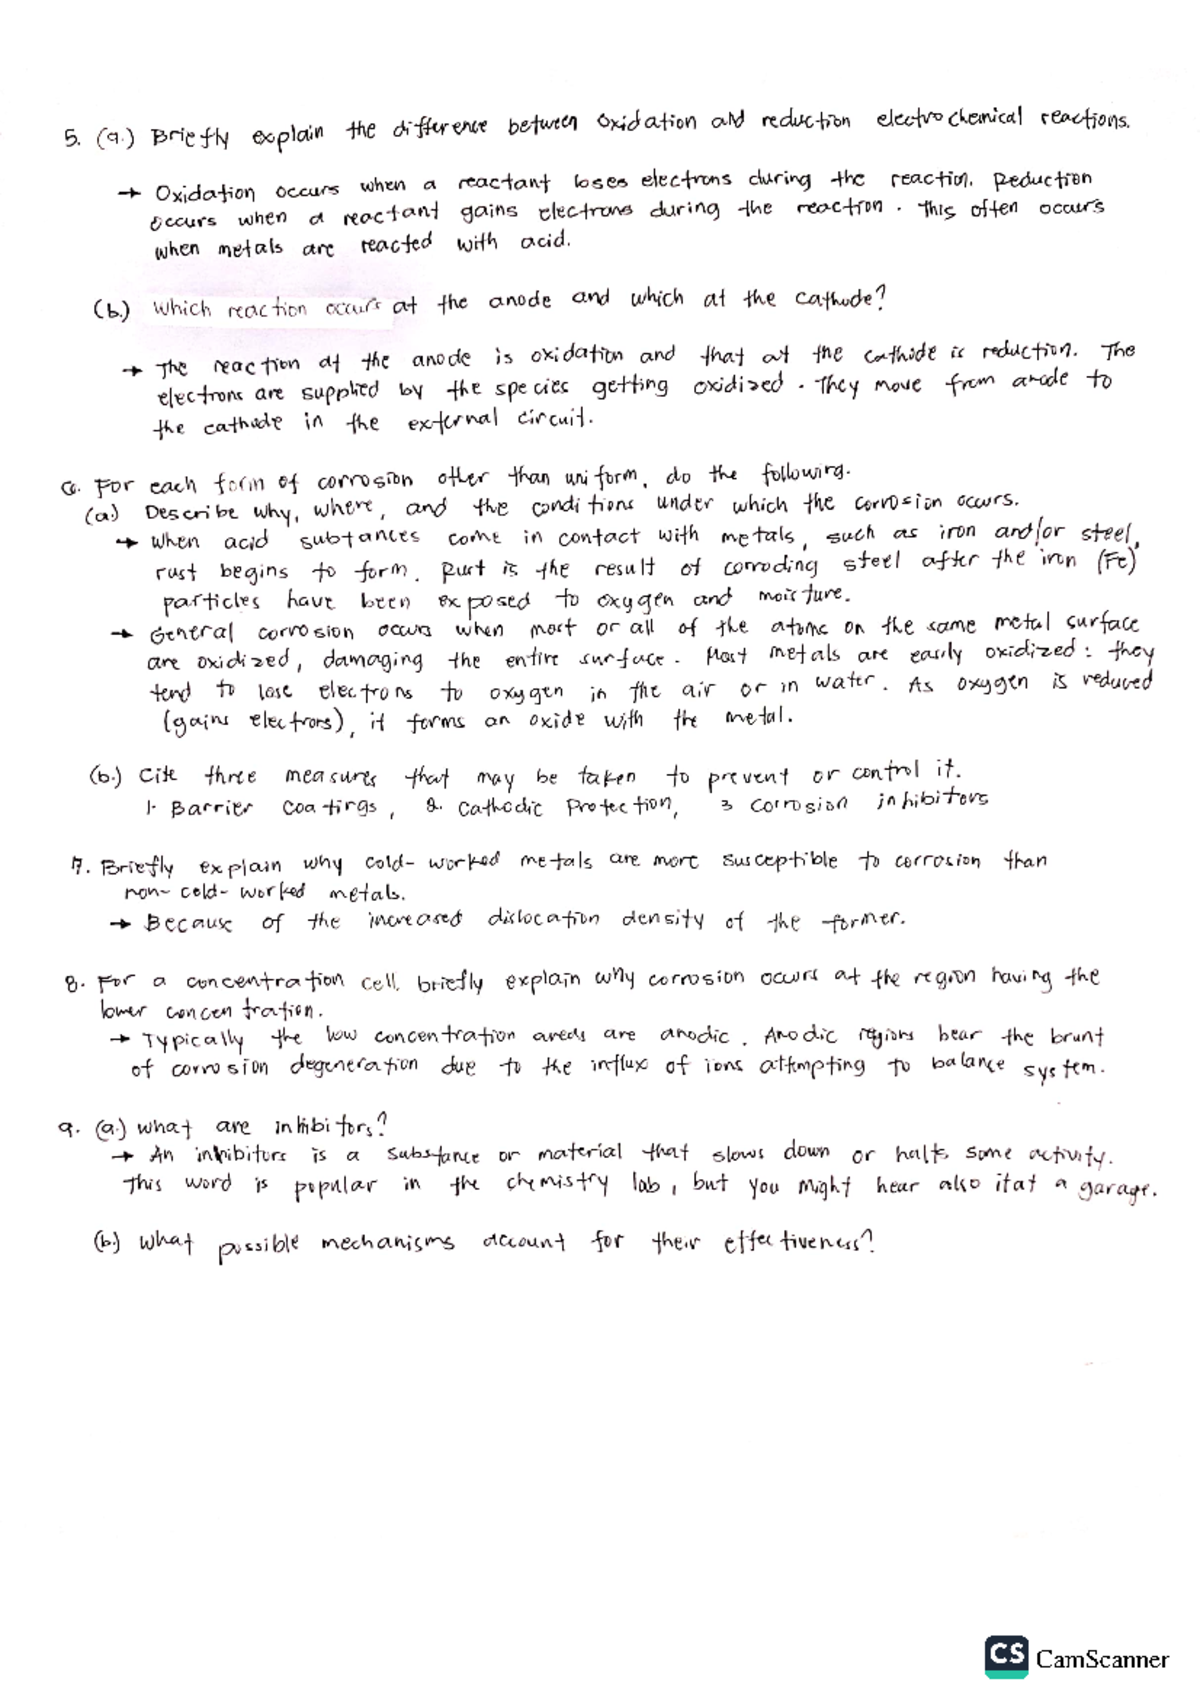 5. (a.) Briefly explain the difference between oxidation and reduction electrochemical reactions.
→ Oxidation occurs when a reactant loses electrons during the reaction. Reduction
occurs when a reactant gains electrons during the reaction. This often occurs
when metals are reacted with acid.
(b.) which reaction occurs at the anode and which at the cathode?
→ The reaction at the anode is oxidation and that at the cathode is reduction. The
electrons are supplied by the species getting oxidized. They move from anode to
the cathode in the external circuit.
6. For each form of corrosion other than uniform, do the following.
(a.) Describe why, where, and the conditions under which the corrosion occurs.
→ When acid subtances come in contact with metals, such as iron and/or steel,
rust begins to form. Rust is the result of corroding steel after the iron (Fe)
particles have been exposed to oxygen and moisture.
→ General corrosion occurs when most or all of the atoms on the same metal surface
are oxidized, damaging the entire surface. Most metals are easily oxidized: they
tend to lose electrons to oxygen in the air or in water. As oxygen is reduced
(gains electrons), it forms an oxide with the metal.
(b.) Cite three measures that may be taken to prevent or control it.
1. Barrier coatings, 2. Cathodic Protection, 3 Corrosion inhibitors
7. Briefly explain why cold-worked metals are more susceptible to corrosion than
non-cold-worked metals.
→ Because of the increased dislocation density of the former.
8. For a concentration cell, briefly explain why corrosion occurs at the region having the
lower concentration.
→ Typically the low concentration areas are anodic. Anodic regions bear the brunt
of corrosion degeneration due to the influx of ions attempting to balance system.
9. (a.) what are inhibitors?
→ An inhibitors is a substance or material that slows down or halts some activity.
This word is popular in the chemistry lab, but you might hear also it at a garage.
(b.) What possible mechanisms account for their effectiveness?
CS CamScanner